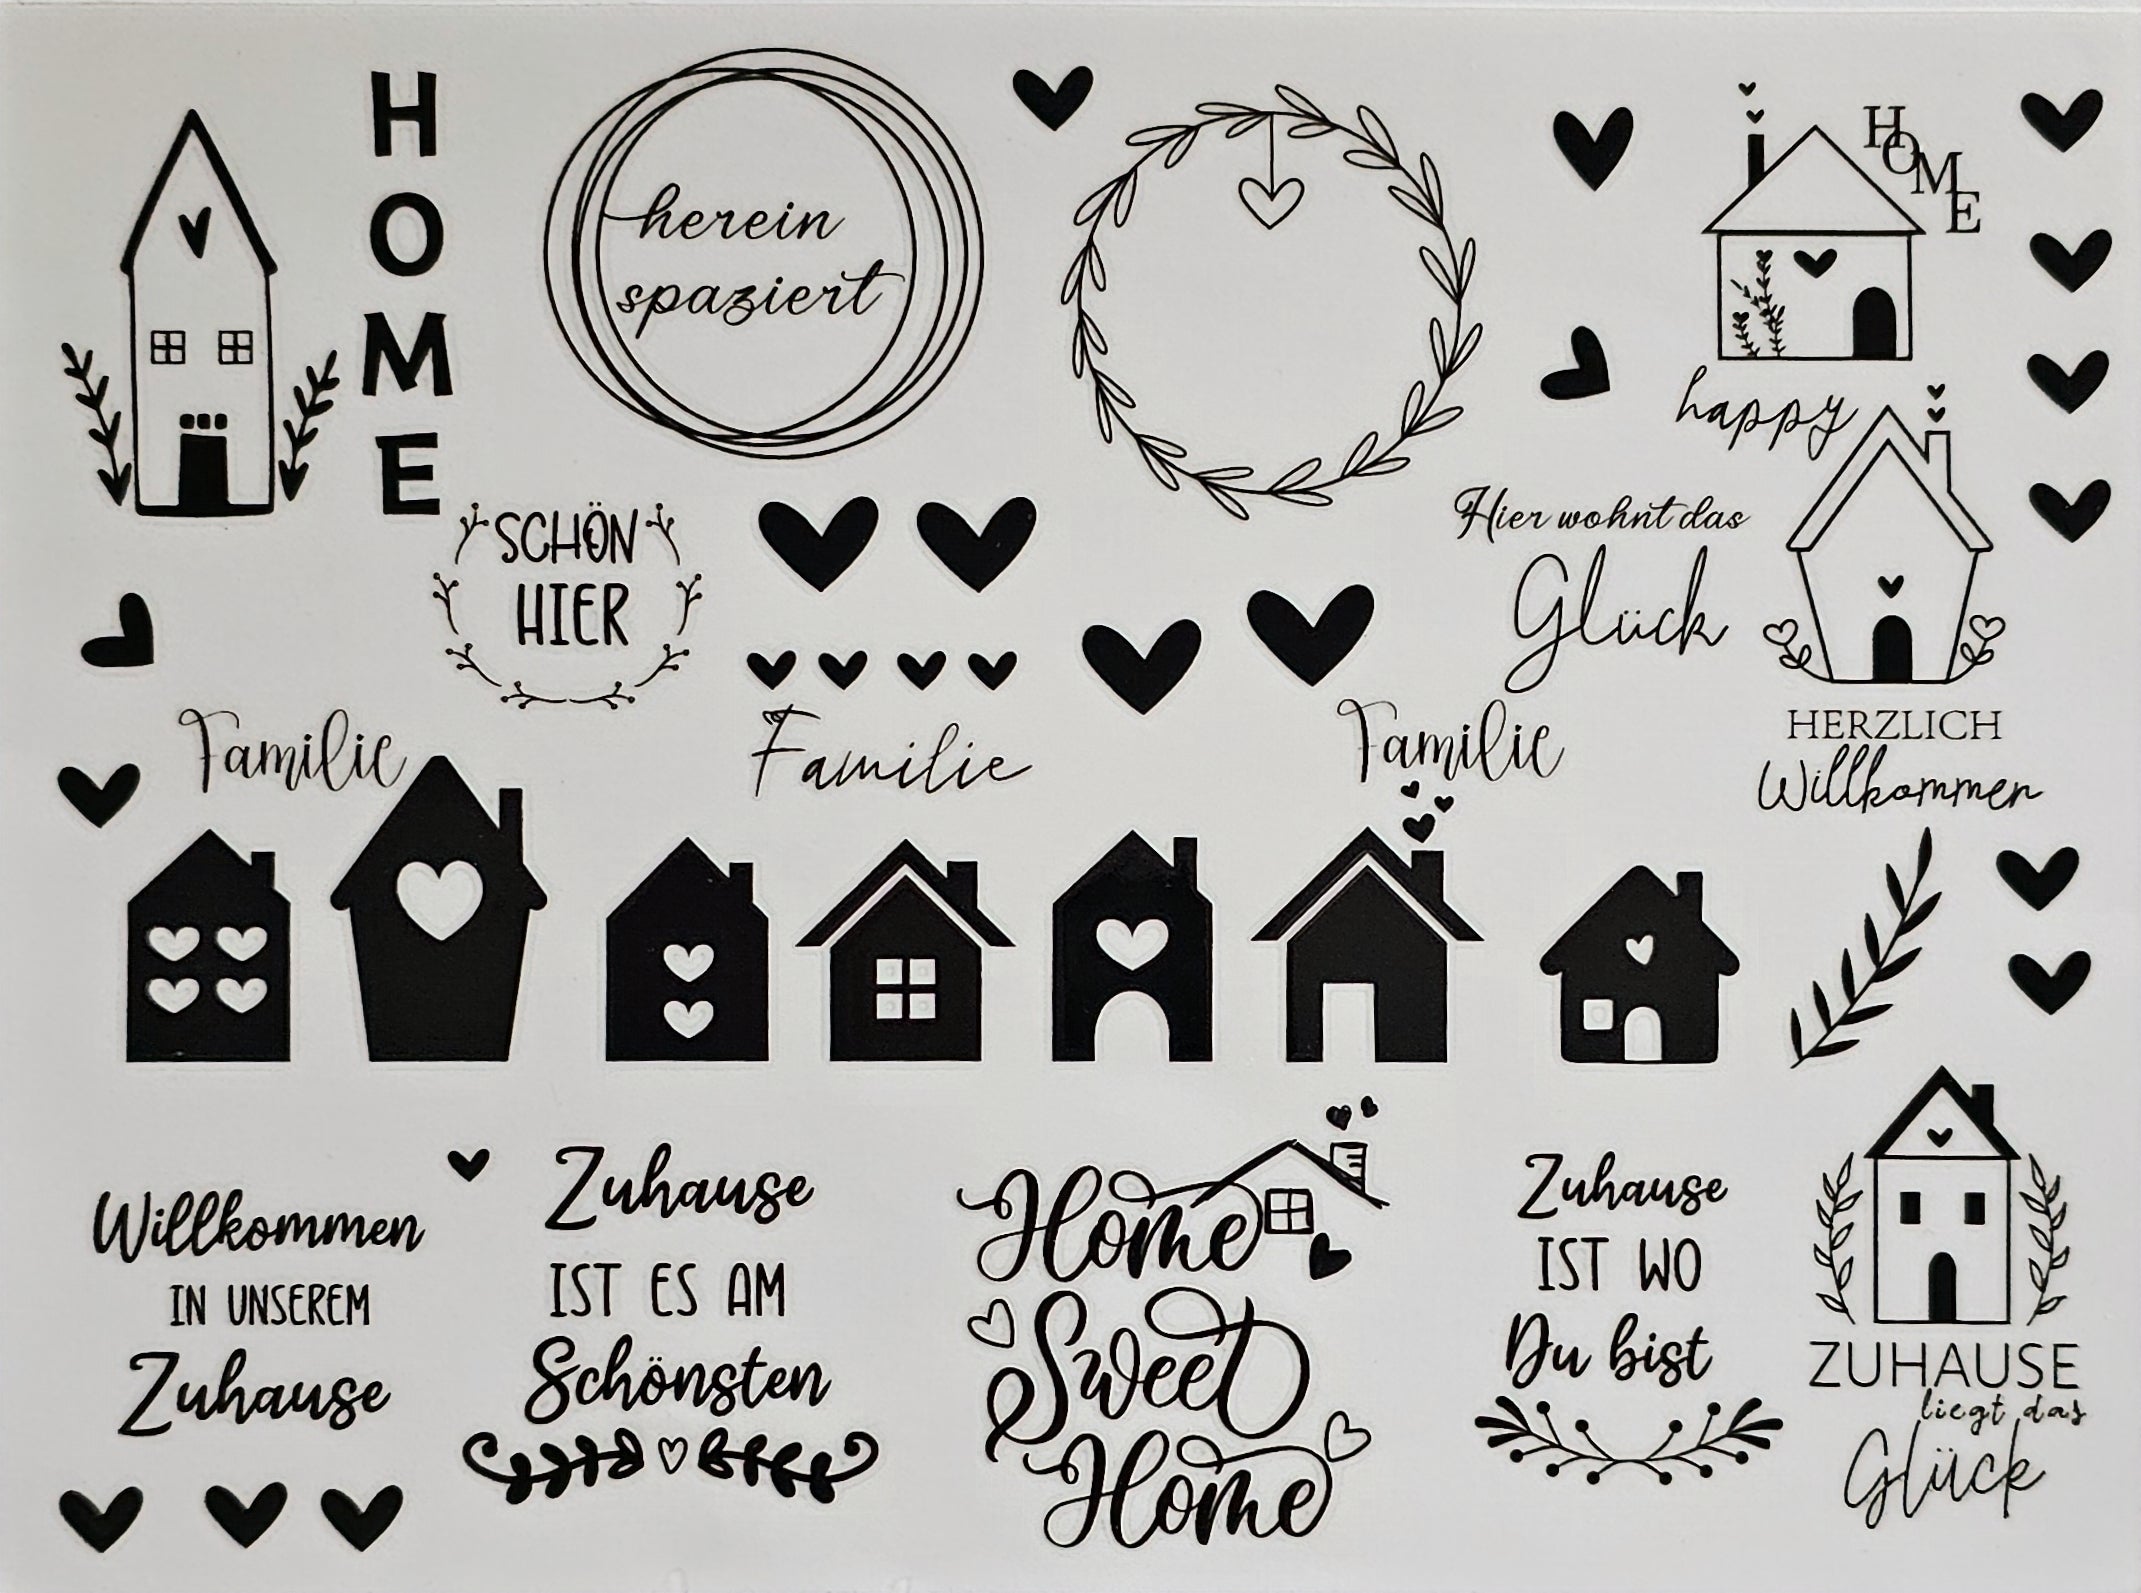 HOME
herein
spaziert
HOME
happy
SCHÖN
HIER
Hier wohnt das
Glück
Familie
Familie
Familie
HERZLICH
Willkommen
Willkommen
IN UNSEREM
Zuhause
Zuhause
IST ES AM
Schönsten
Home
Sweet
Home
Zuhause
IST WO
Du bist
ZUHAUSE
liegt das
Glück